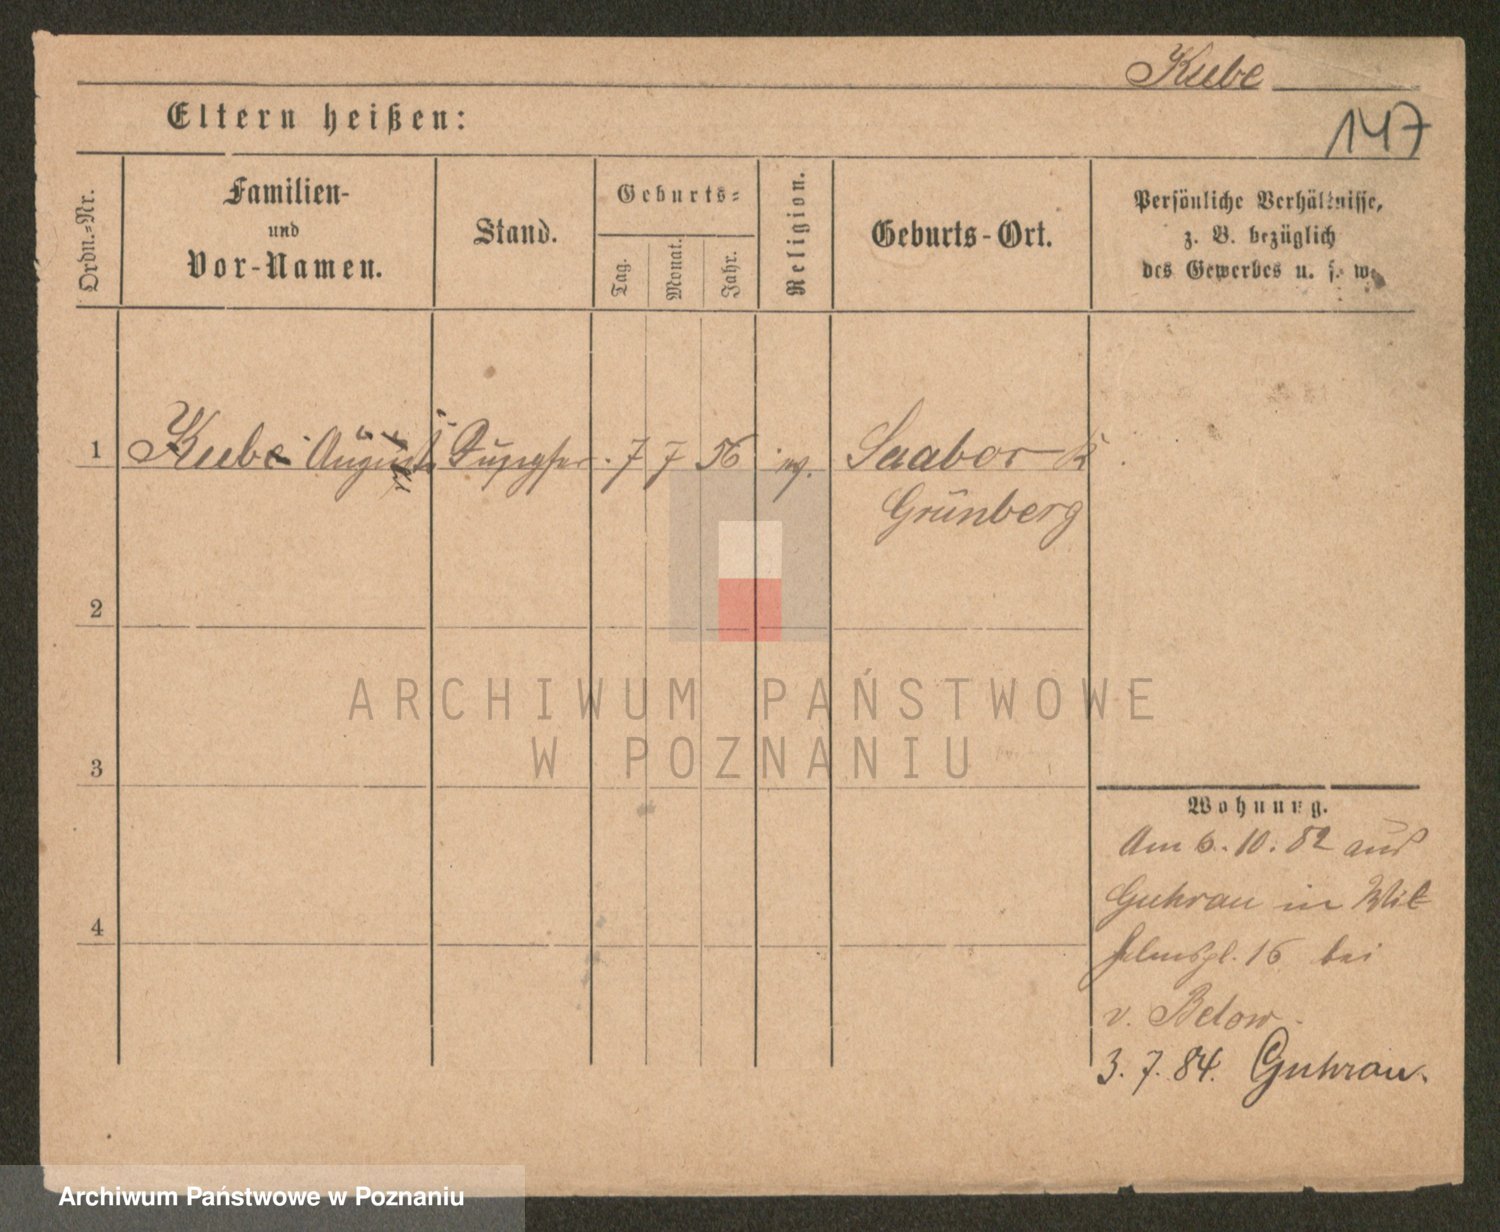 Kube
147
Eltern heißen:
Ordn.-Nr.
Familien-
und
Vor-Namen.
Stand.
Geburts-
Tag.
Monat.
Jahr.
Religion.
Geburts-Ort.
Persönliche Verhältnisse,
z. B. bezüglich
des Gewerbes u. s. w.
1 Kube August 7 7 56 ev. Saabor K
Grünberg
2
3
4
ARCHIWUM PAŃSTWOWE
W POZNANIU
Wohnung.
Am 6.10.82 aus
Guhrau in Wil
helmspl. 16 bei
v. Below.
3.7.84. Guhrau.
Archiwum Państwowe w Poznaniu